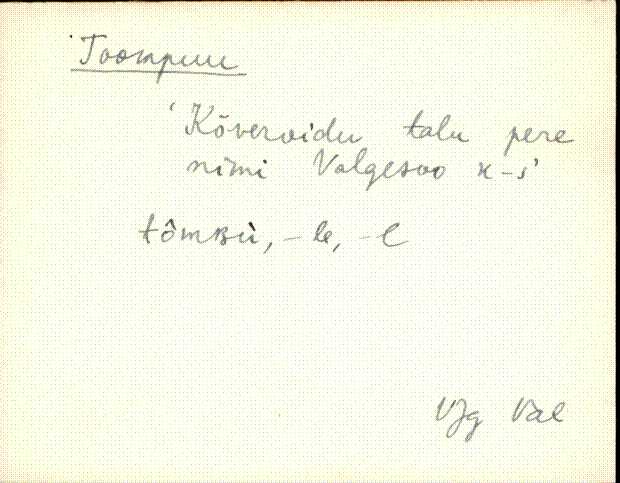 Toompuu
'Kõveroidu talu pere
nimi Valgesoo k-s'
tômʙù, -le, -l
Vjg Val